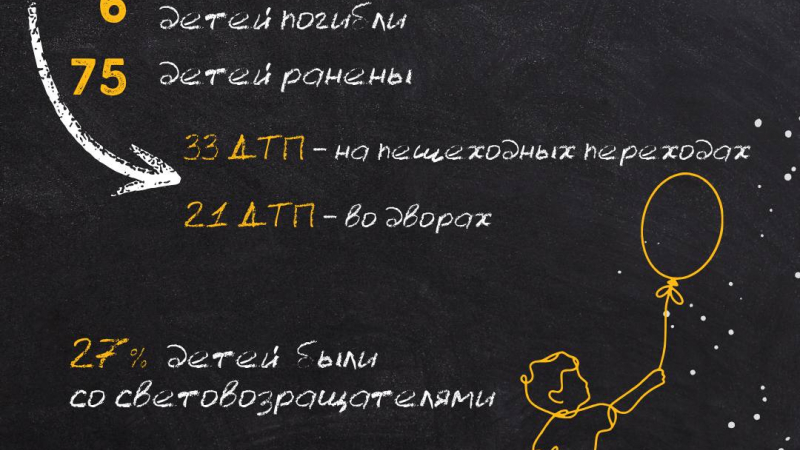 6 детей погибли
75 детей ранены
33 ДТП – на пешеходных переходах
21 ДТП – во дворах
27% детей были
со световозращателями